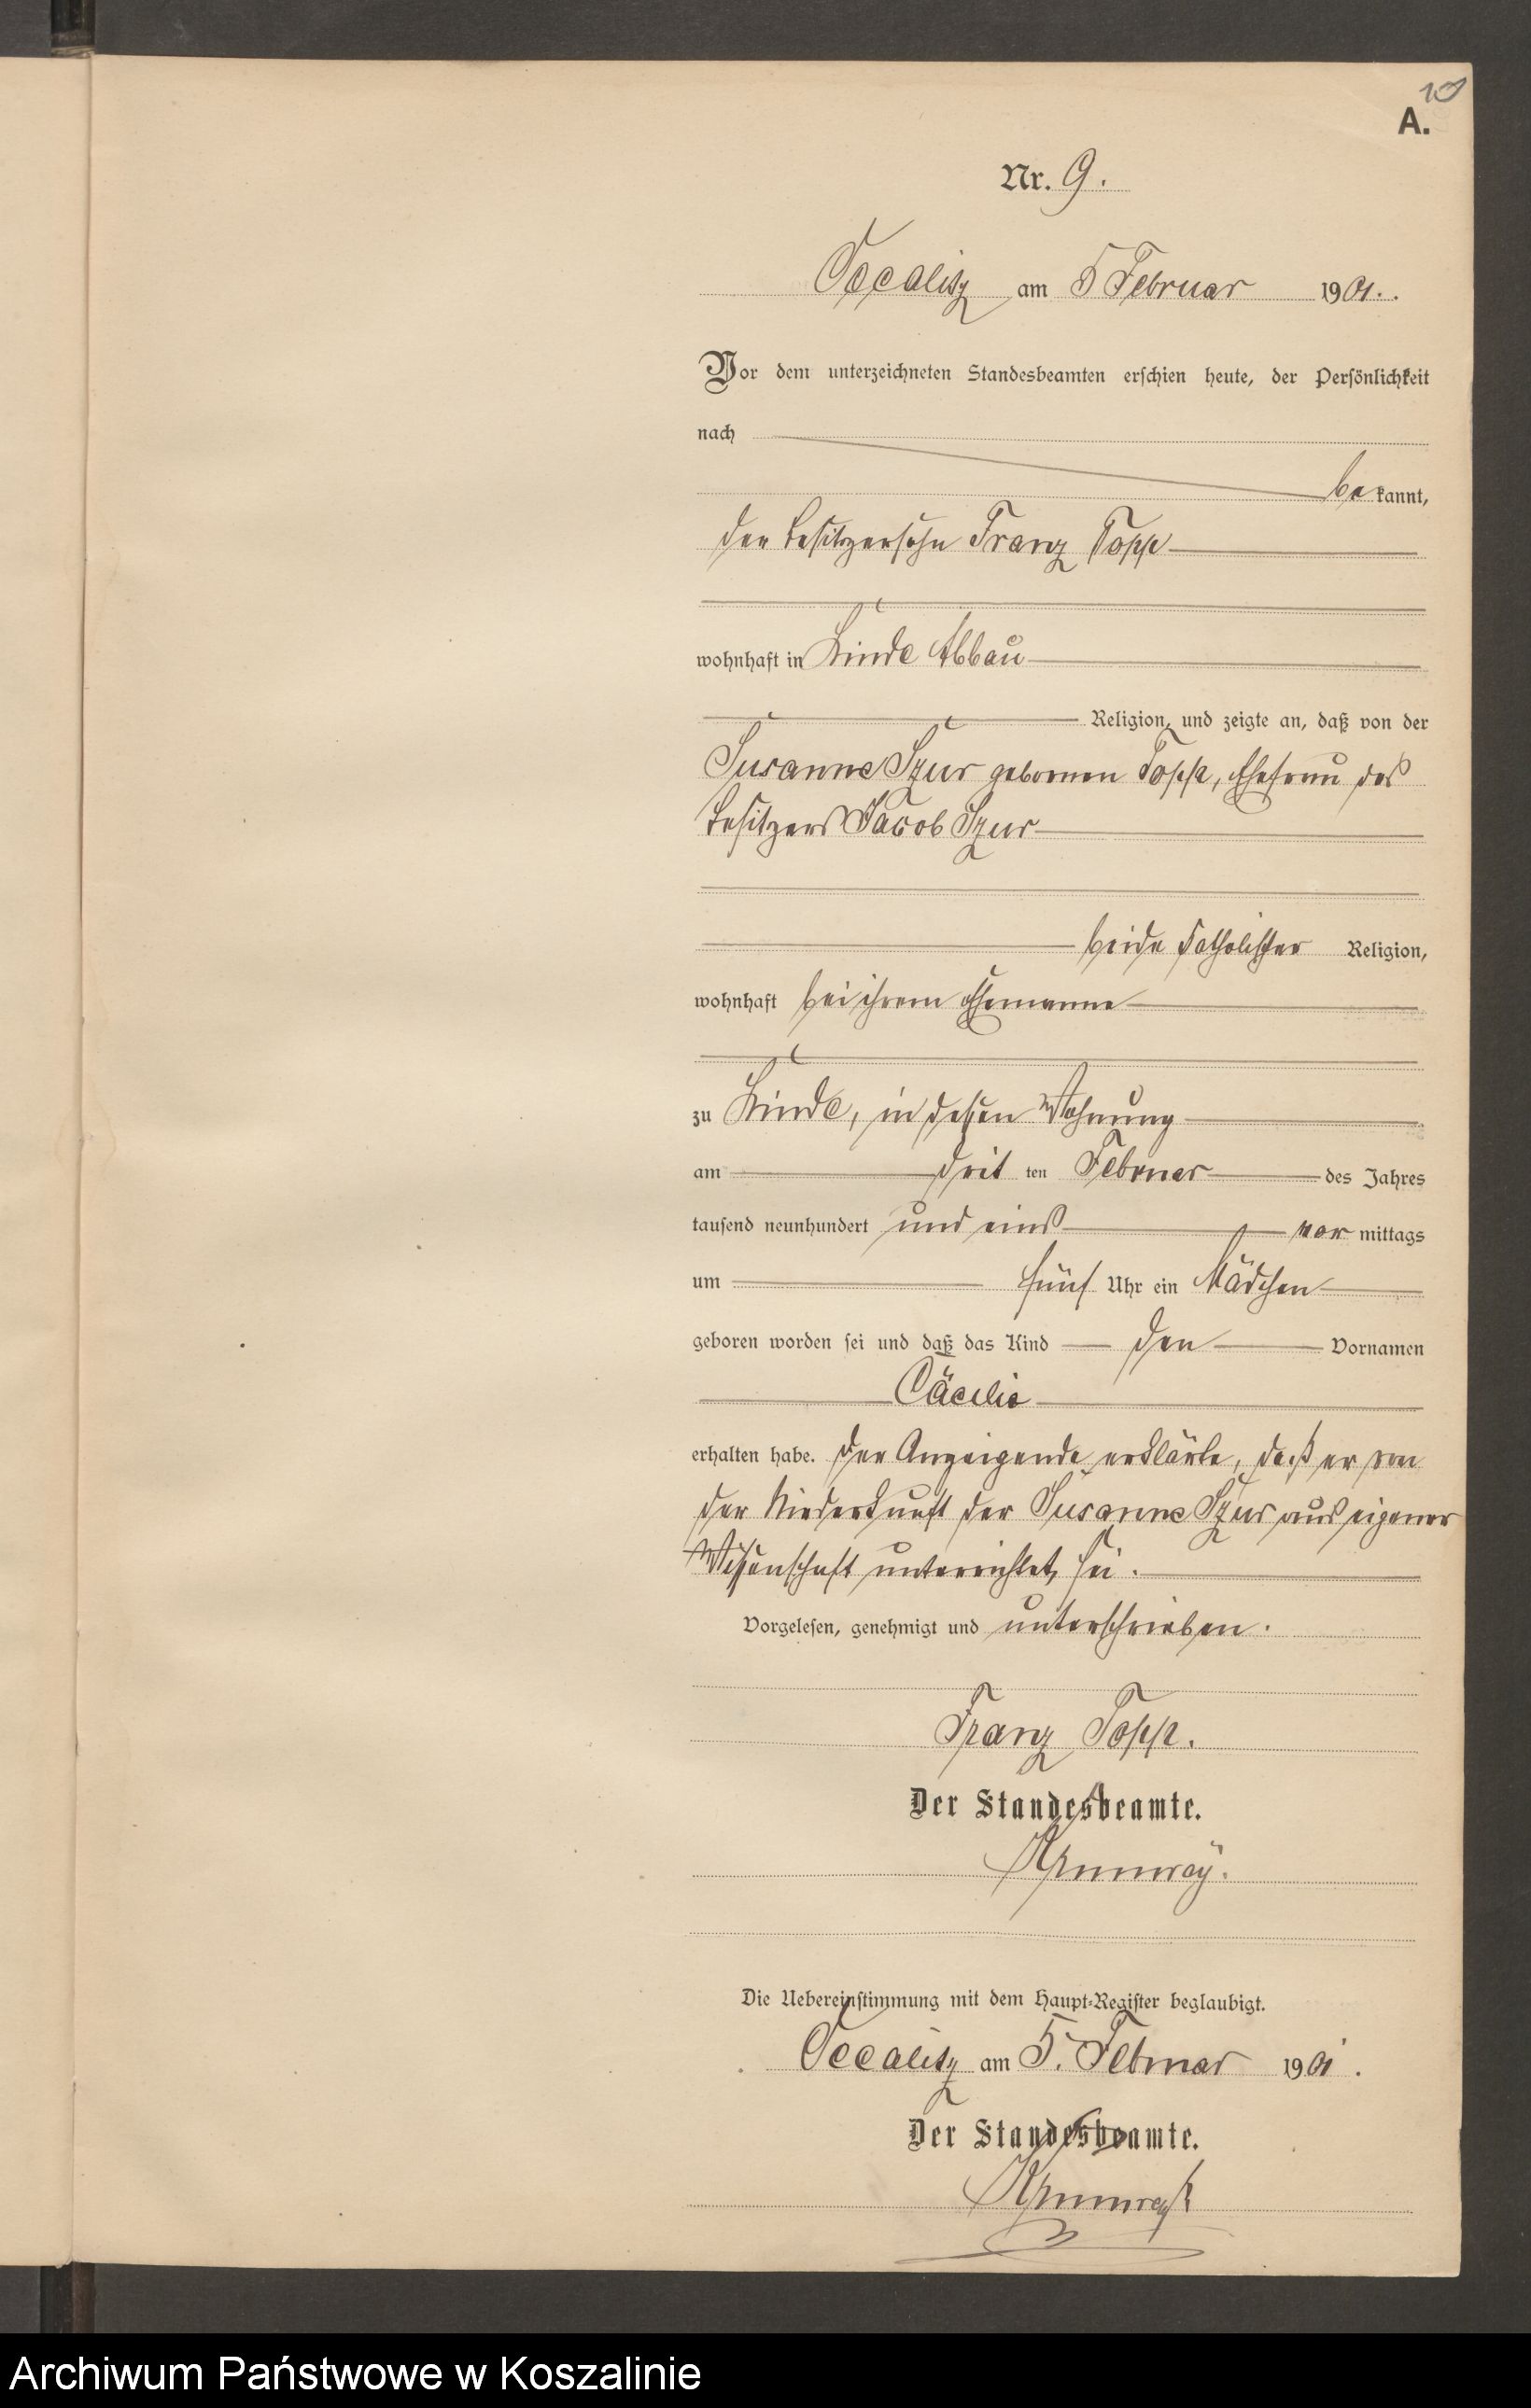 10
A.
Nr. 9.
Oecalitz am 5 Februar 1901.
Vor dem unterzeichneten Standesbeamten erschien heute, der Persönlichkeit
nach
bekannt,
der Besitzersohn Franz Topp
wohnhaft in Linde Abbau
Religion, und zeigte an, daß von der
Susanne Szur geborenen Topp, Ehefrau des
Besitzers Jacob Szur
beide katholischer Religion,
wohnhaft bei ihrem Ehemanne
zu Linde, in dessen Wohnung
am dritten Februar des Jahres
tausend neunhundert und eins vormittags
um fünf Uhr ein Mädchen
geboren worden sei und daß das Kind den Vornamen
Cäcilie
erhalten habe. Der Anzeigende erklärte, daß er von
der Niederkunft der Susanne Szur aus eigener
Wissenschaft unterrichtet sei.
Vorgelesen, genehmigt und unterschrieben.
Franz Topp.
Der Standesbeamte.
Die Uebereinstimmung mit dem Haupt-Register beglaubigt.
Oecalitz am 5. Februar 1901.
Der Standesbeamte.
Archiwum Państwowe w Koszalinie